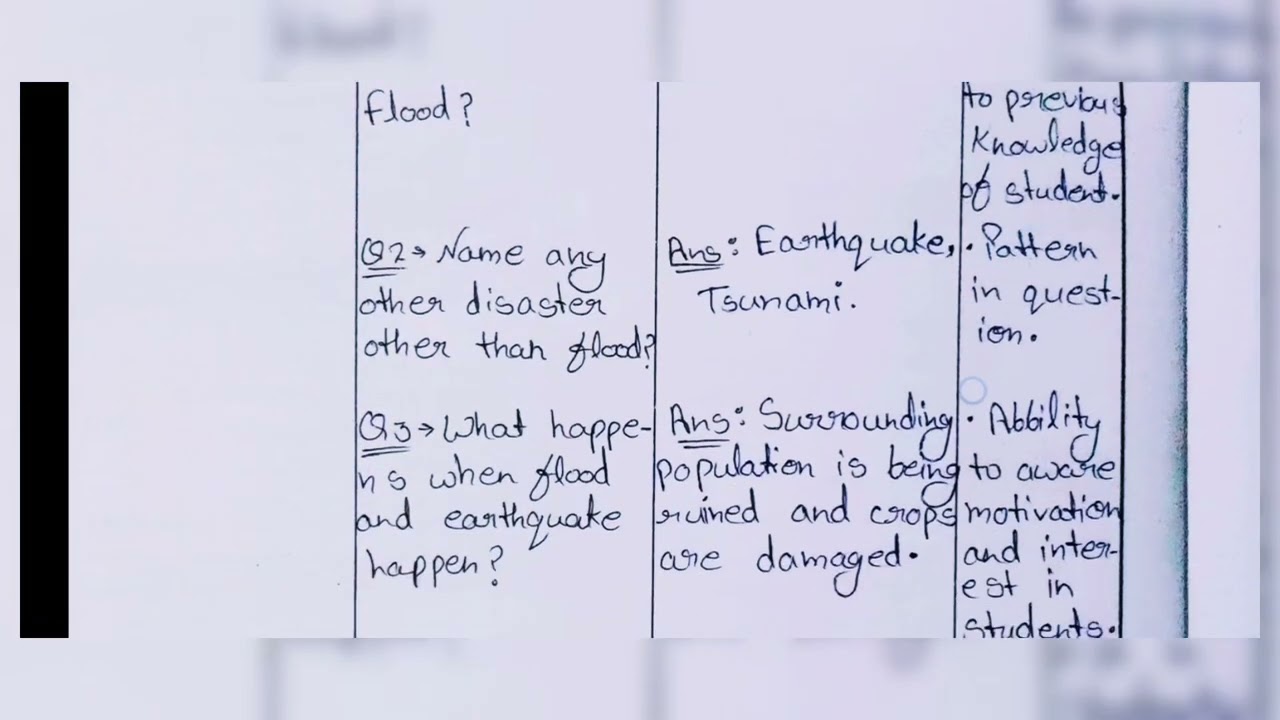 flood?
to previous
Knowledge
of student.
Q2→ Name any
other disaster
other than flood?
Ans: Earthquake,
Tsunami.
· Pattern
in quest-
ion.
Q3→ What happe-
ns when flood
and earthquake
happen?
Ans: Surrounding
population is being
ruined and crops
are damaged.
· Abbility
to aware
motivation
and inter-
est in
students.